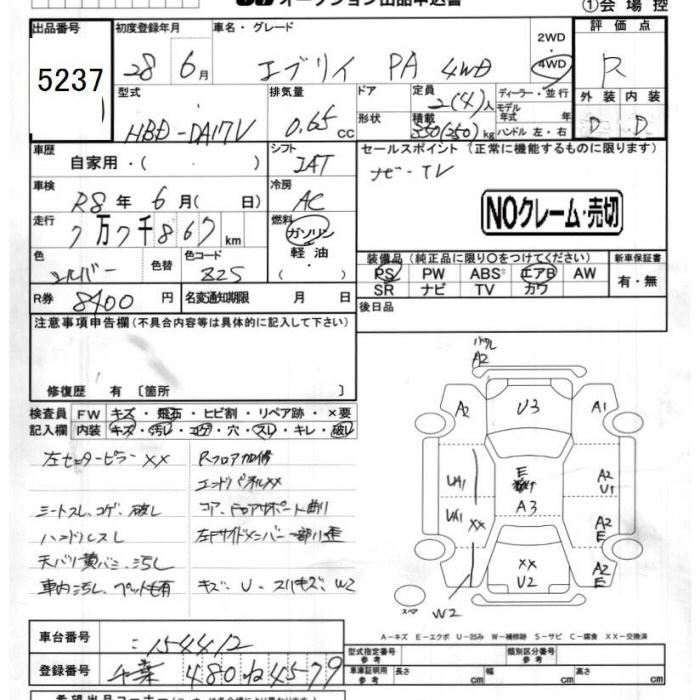 オークション出品申込書
①会場控
出品番号 初度登録年月 車名・グレード 評価点
5237 28 6月 エブリイ PA 4WD 2WD 4WD R
型式 排気量 ドア 定員 ディーラー・並行 外装 内装
HBD-DA17V 0.65cc 形状 2(4)人 モデル年式 年式 D D
積載 350(250)kg ハンドル 左・右
車歴 自家用・( ) シフト IAT セールスポイント (正常に機能するものに限ります)
車検 R8年 6月( 日) 冷房 AC ナビ-TV
NOクレーム・売切
走行 7万7千867km 燃料 ガソリン 軽油 ( )
色 シルバー 色替 色コード Z2S 装備品 (純正品に限り○をつけてください) 新車保証書
PS PW ABS エアB AW 有・無
R券 8400円 名変通知期限 月 日 SR ナビ TV カワ
注意事項申告欄(不具合内容等は具体的に記入して下さい) 後日品
修復歴 有 〔箇所 〕
検査員 FW キズ・飛石・ヒビ割・リペア跡・×要
記入欄 内装 キズ・汚レ・コゲ・穴・スレ・キレ・破レ
左センターピラーXX Rフロア加修
エンドパネルXX
シートスレ、コゲ、破レ コア、ドアサポート曲り
ハンドルスレ 左Fサイドメンバー一部歪
天バリ黄バミ、汚レ
車内汚レ、ペット毛有 キズ、U・スリキズ、W2
A2
A2 U3 A1
UA1 E A2 U1
A3
UA1 XX A2 E
XX U2 A2 E
スペア W2
A-キズ E-エクボ U-凹み W-補修跡 S-サビ C-腐食 XX-交換済
車台番号 154412 型式指定番号 参考 類別区分番号 参考
登録番号 千葉 480 ね 4579 車庫証明用 参考 長さ cm 幅 cm 高さ cm
希望出品コーナー